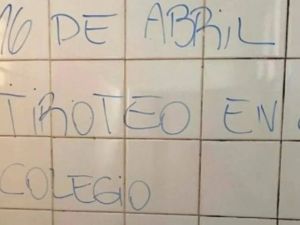 16 DE ABRIL
TIROTEO EN
COLEGIO